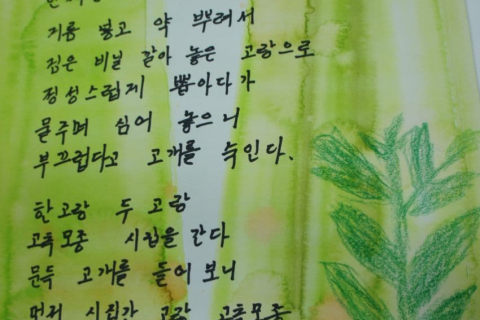 거름 넣고 약 뿌려서
검은 비닐 깔아 놓은 고랑으로
정성스럽게 뽑아다가
물주며 심어 놓으니
부끄럽다고 고개를 숙인다.
한고랑 두고랑
고추모종 시집을 간다
문득 고개를 들어보니
먼저 시집간 고랑 고추모종